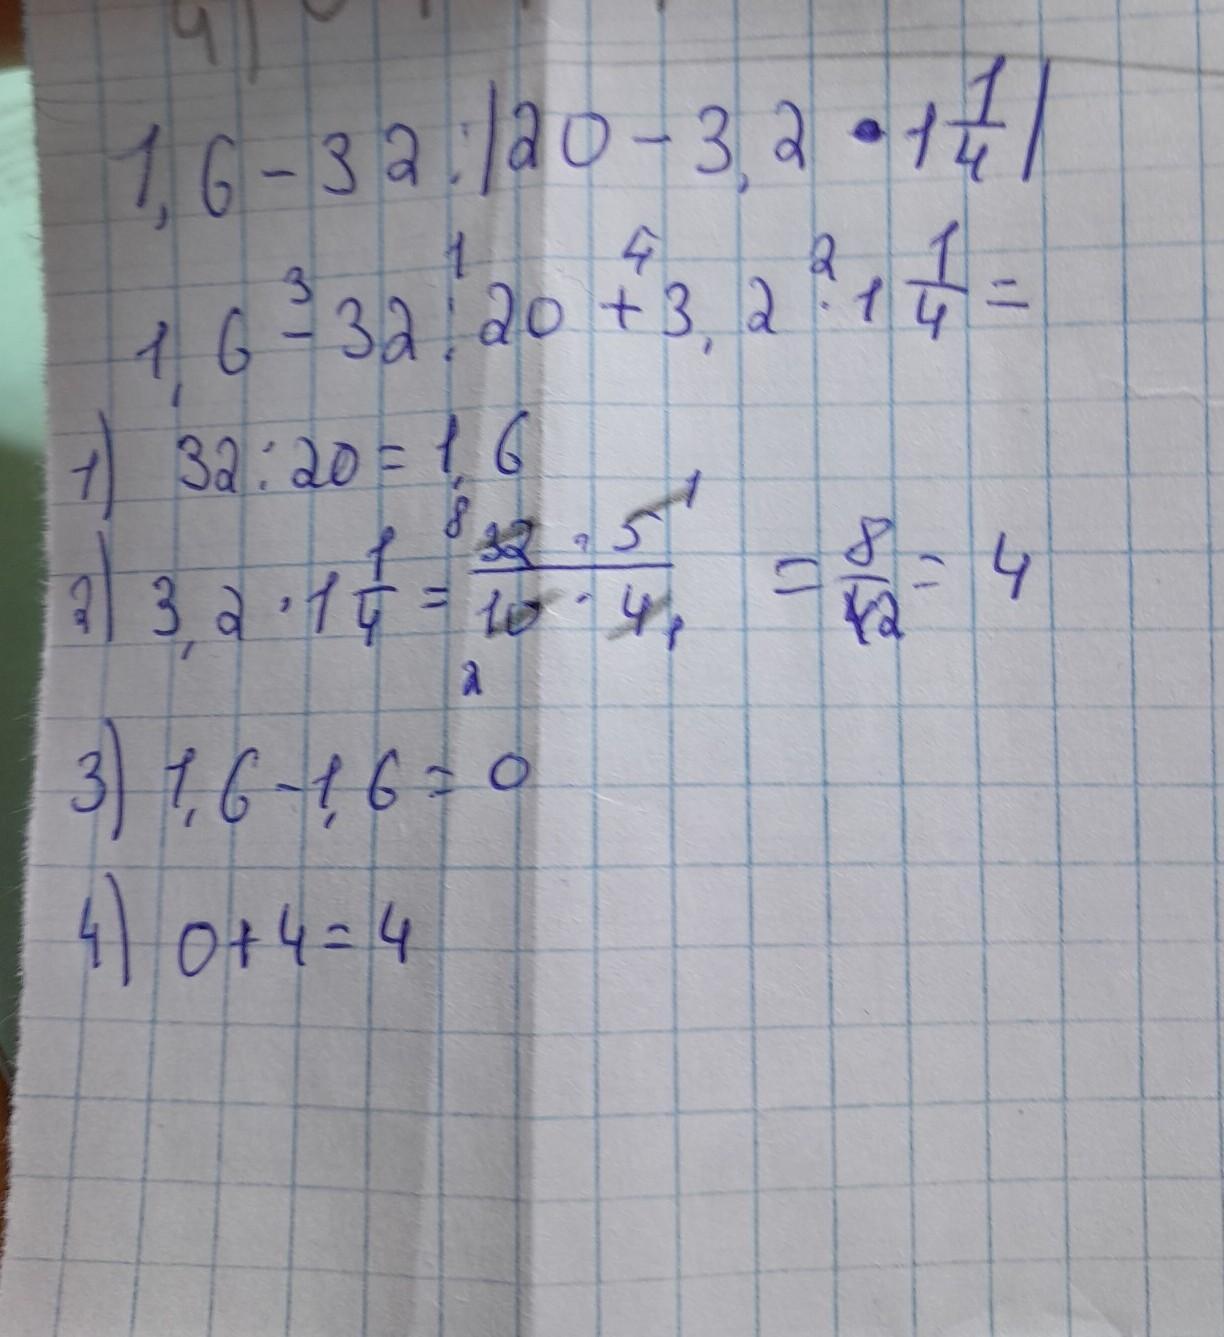 4)
1,6 - 32 : |20 - 3,2 • 1 1/4|
1,6 -³ 32 :¹ 20 +⁴ 3,2 ·² 1 1/4 =
1) 32 : 20 = 1,6
2) 3,2 · 1 1/4 = 32 · 5 / 10 · 4 = 8/2 = 4
8 1
2 1
3) 1,6 - 1,6 = 0
4) 0 + 4 = 4